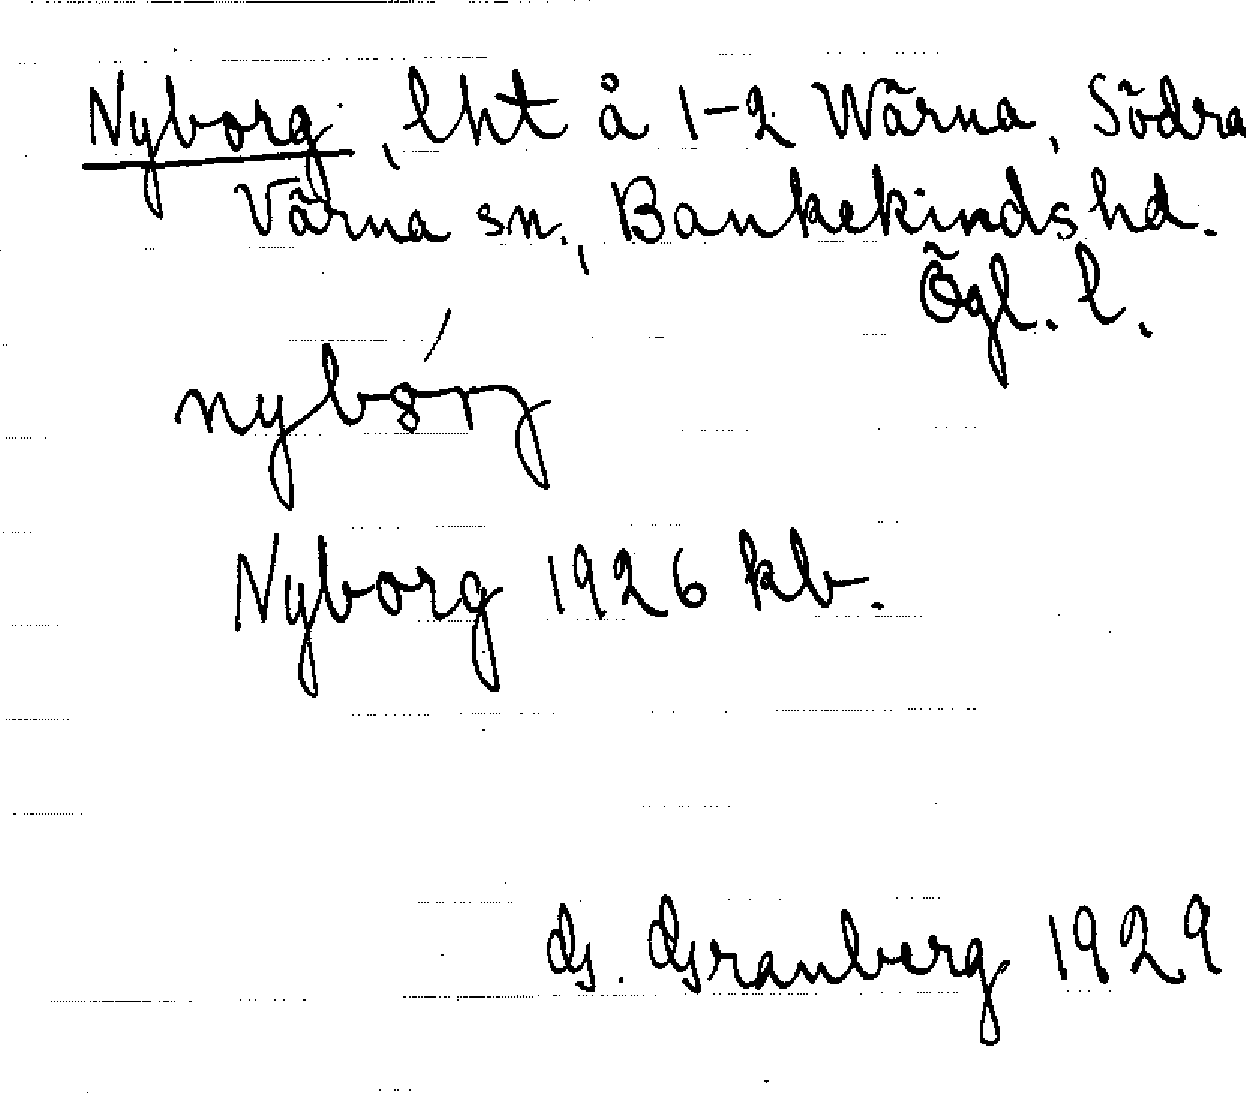 Nyborg, lht å 1-2 Wärna, Södra
Värna sn., Bankekinds hd.
Ögl. l.
Nyborg 1926 kb.
G. Granberg 1929